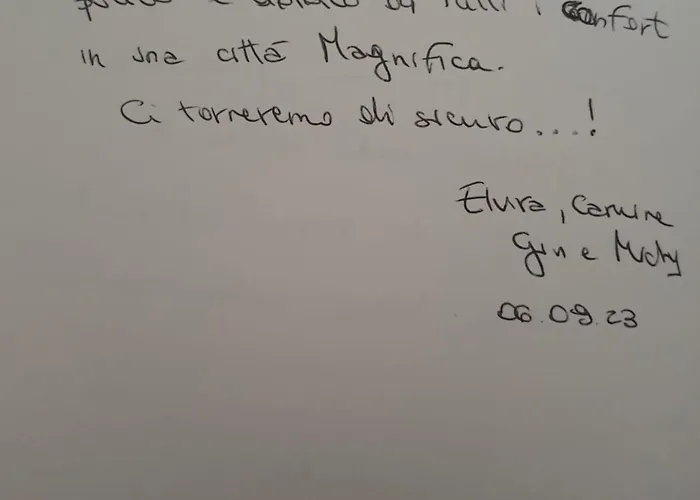 tutti i Confort
in una città Magnifica.
Ci torneremo di sicuro...!
Elvira, Carmine
Gin e Michy
06.09.23